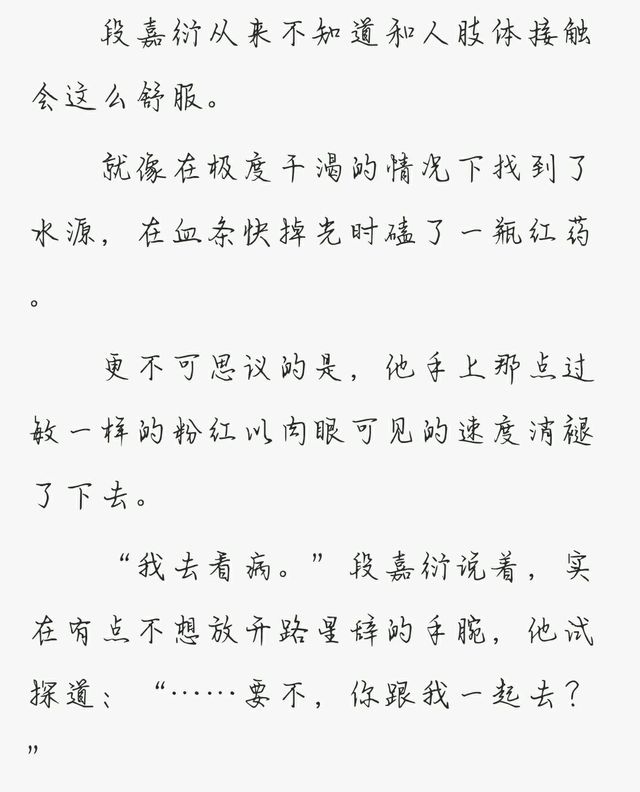 段嘉衍从来不知道和人肢体接触
会这么舒服。
就像在极度干渴的情况下找到了
水源，在血条快掉光时磕了一瓶红药
。
更不可思议的是，他手上那点过
敏一样的粉红以肉眼可见的速度消褪
了下去。
“我去看病。”段嘉衍说着，实
在有点不想放开路星辞的手腕，他试
探道：“……要不，你跟我一起去？
”